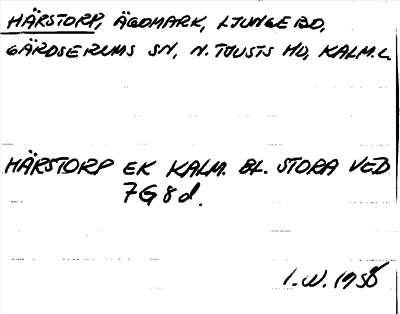 HÄRSTORP, ÄGOMARK, LJUNGEBO,
GÄRDSERUMS SN, N. TJUSTS HD, KALM. L.
HÄRSTORP EK KALM. BL. STORA VED
7G8d.
I.W. 1958